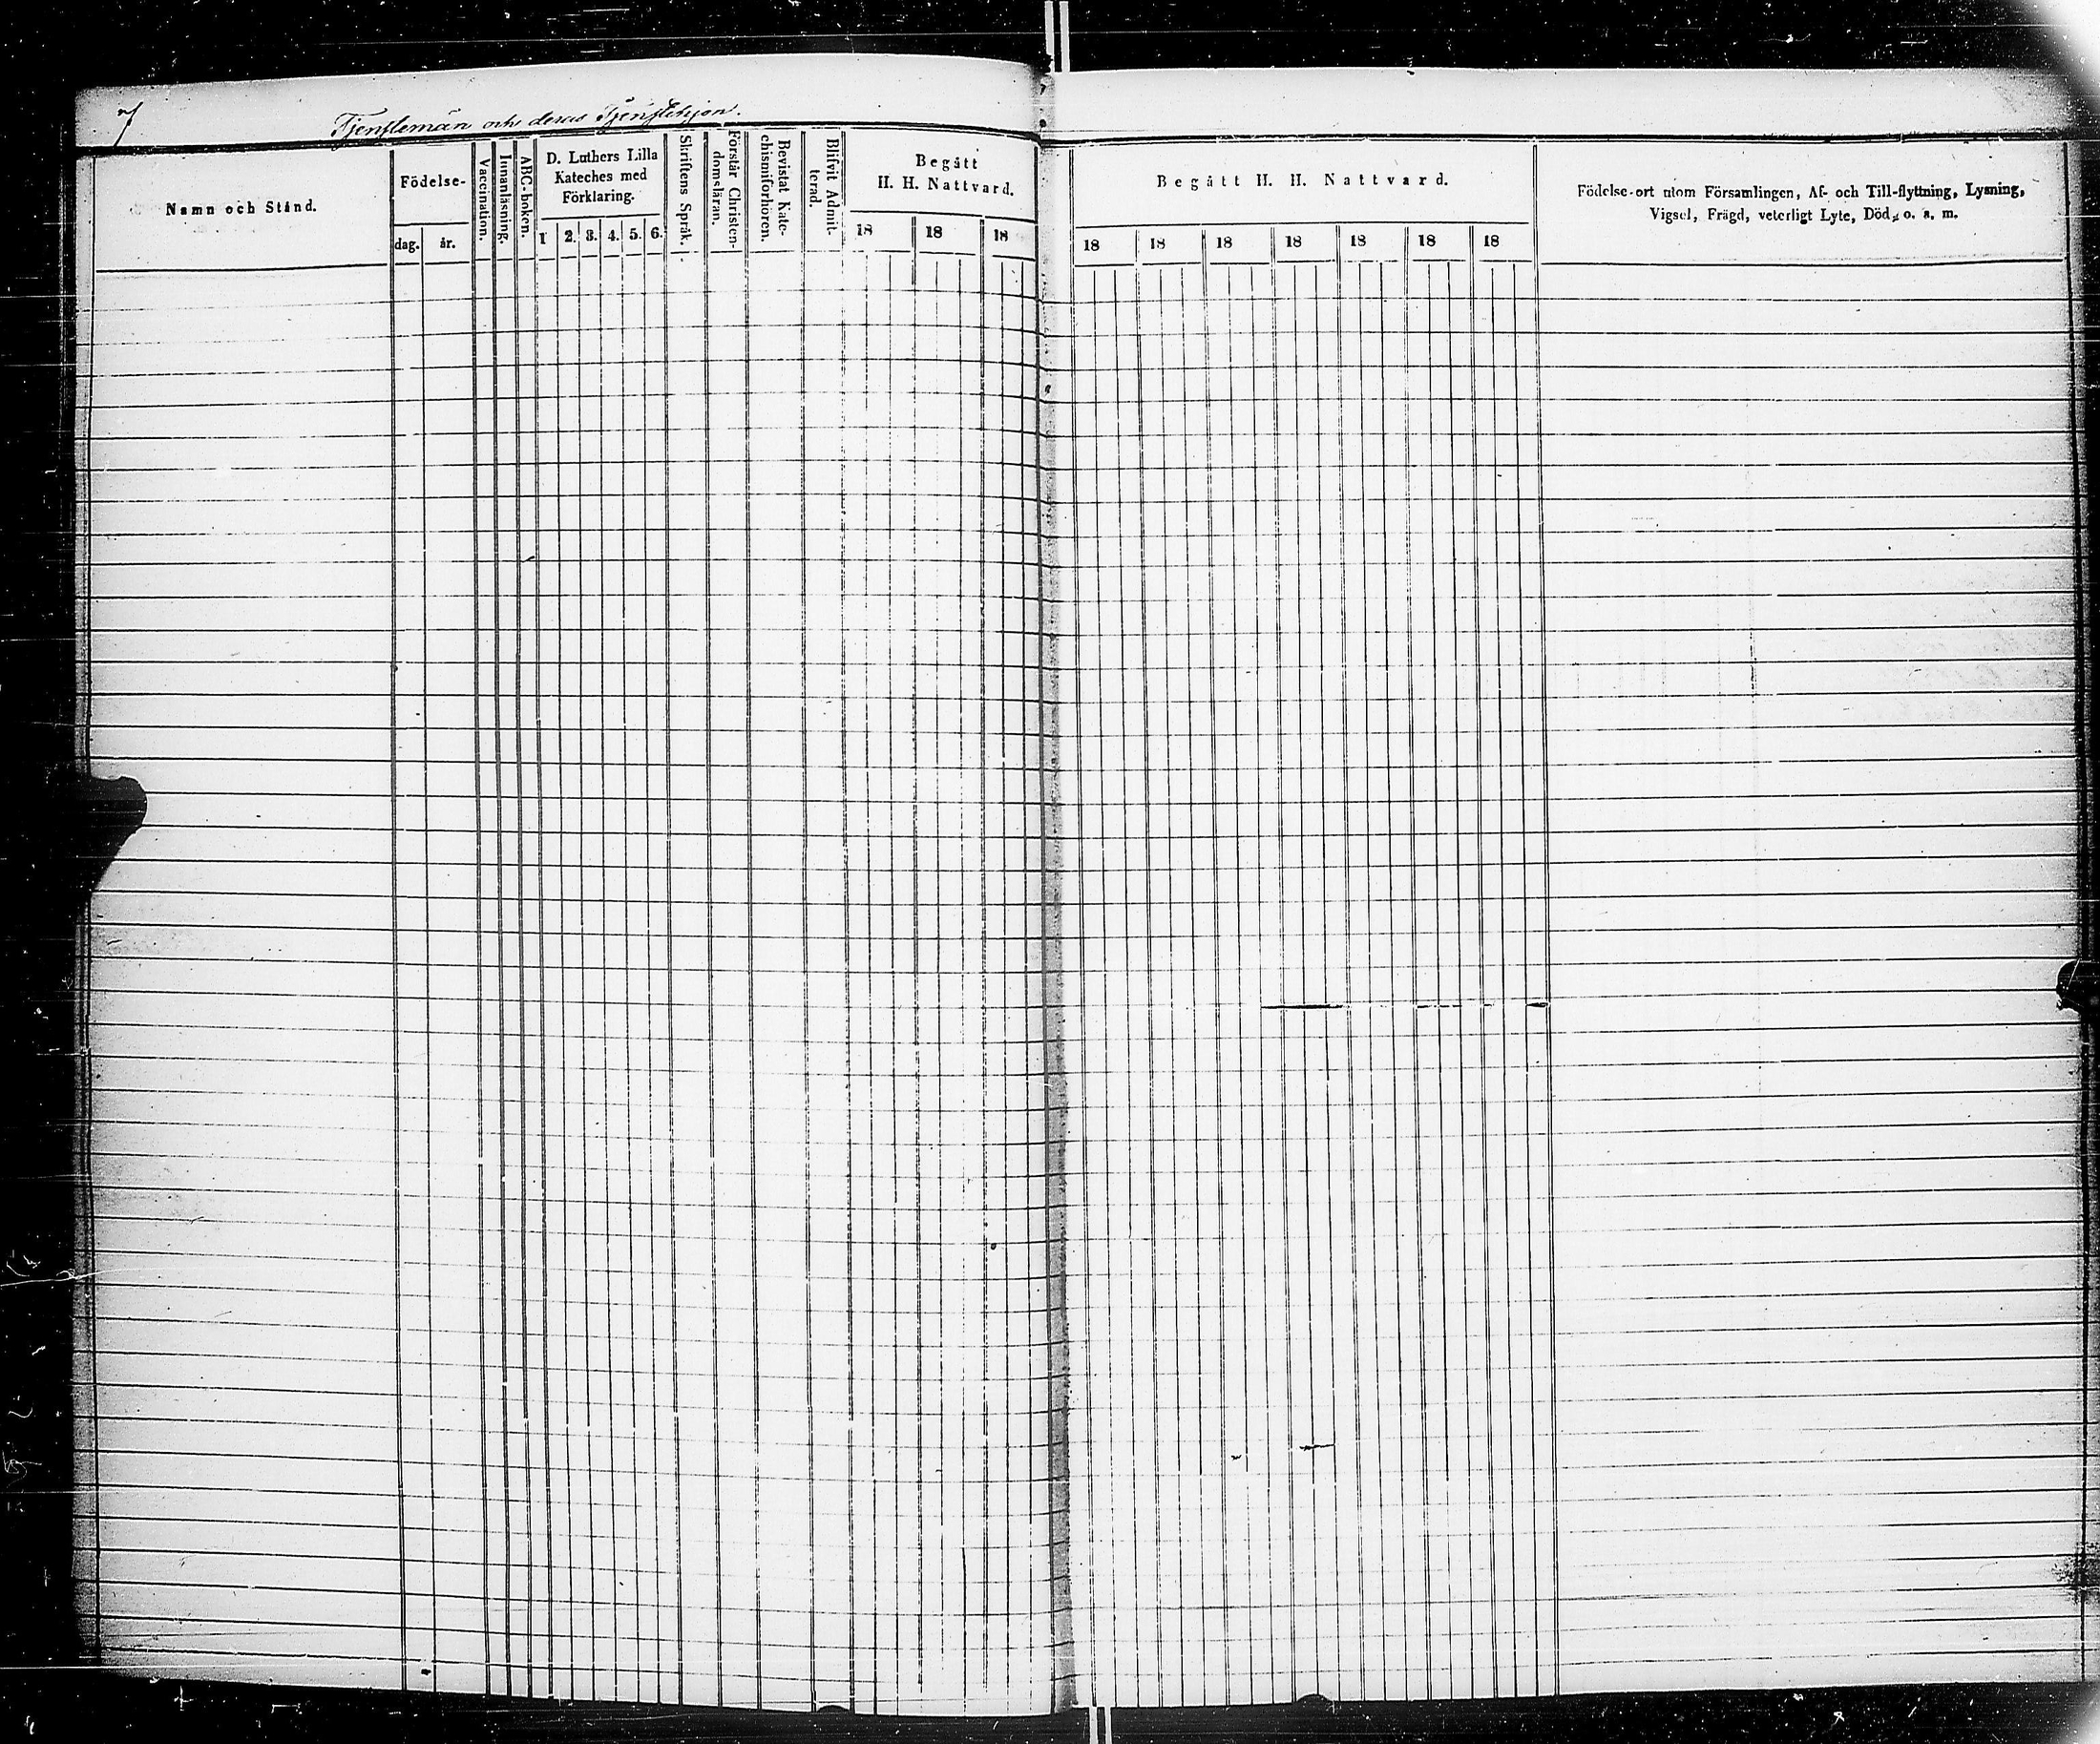 7
Tjenstemän och deras Tjenstehjon.
Namn och Stånd.
Födelse-
dag.
år.
Vaccination.
Innanläsning.
ABC-boken.
D. Luthers Lilla
Kateches med
Förklaring.
1 2. 3. 4. 5. 6.
Skriftens Språk.
Förstår Christen-
domsläran.
Bevistat Kate-
chismiförhören.
Blifvit Admit-
terad.
Begått
H. H. Nattvard.
18 18 18
Begått H. H. Nattvard.
18 18 18 18 18 18 18
Födelse-ort utom Församlingen, Af- och Till-flyttning, Lysning,
Vigsel, Frägd, veterligt Lyte, Död, o. s. m.